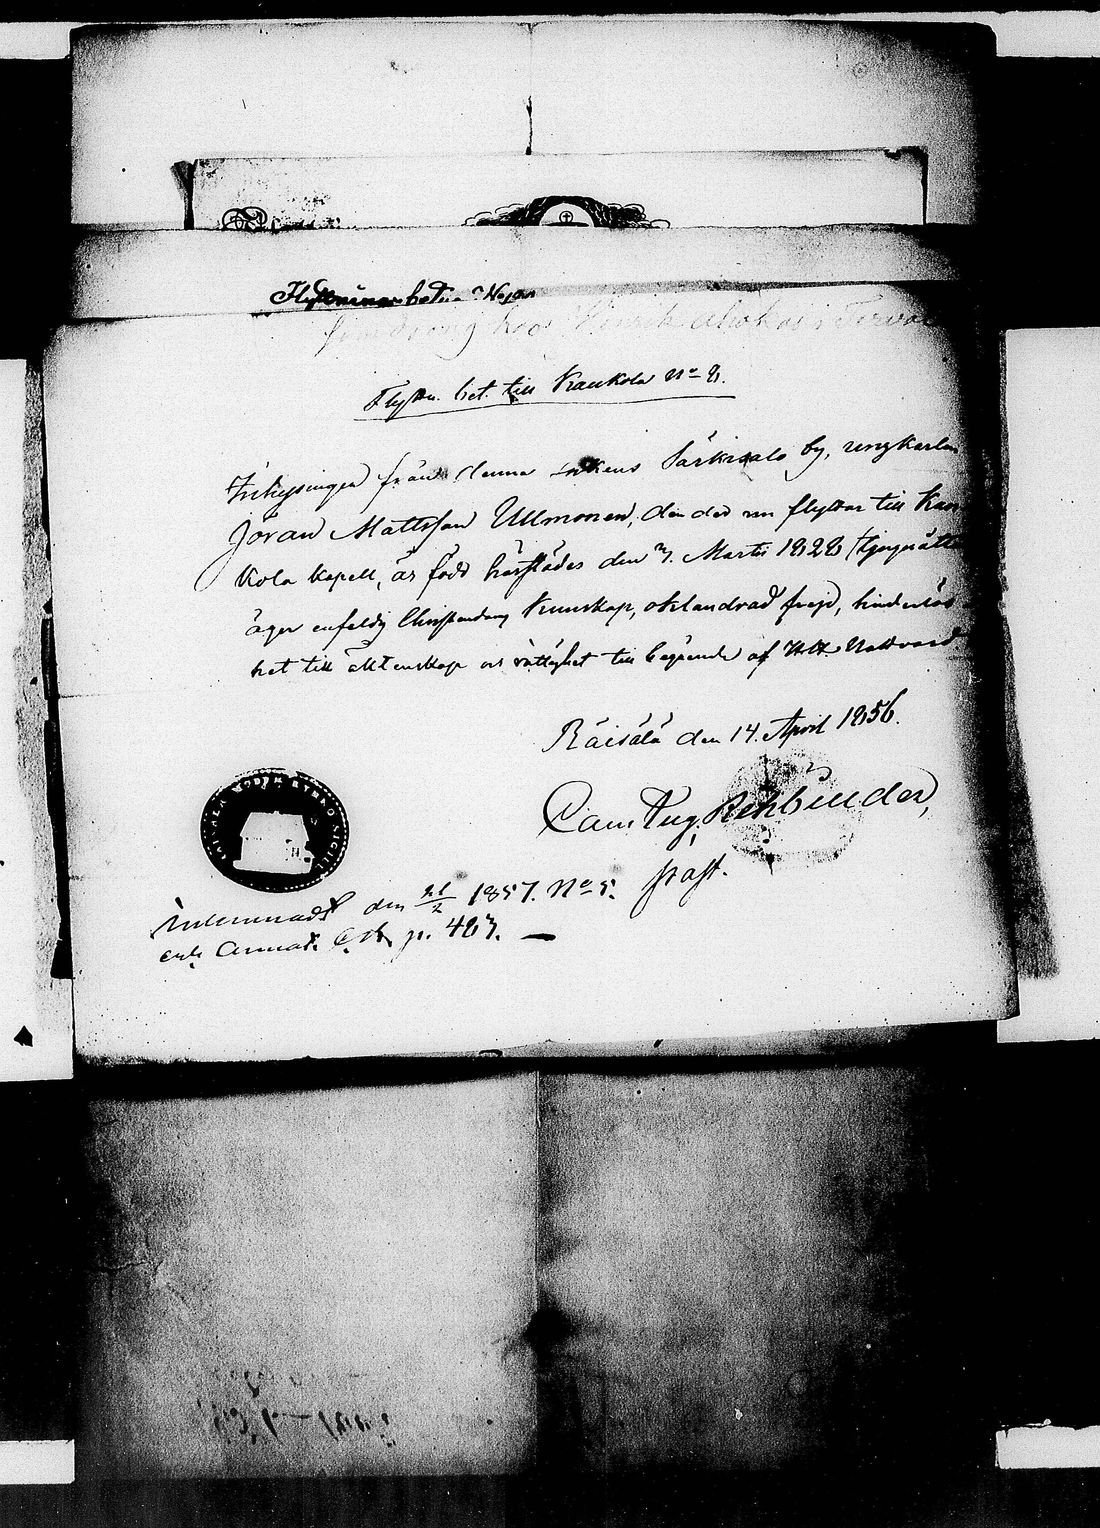 Flyttningsbetyg
som dräng hos Henrik Ahokas i Terva
Flyttn. bet. till Kaukola No 8.
Inhysingen från denna sokens Särkisalo by, ungkarlen
Jöran Mattsson Ullmonen, den der nu flyttar till Kau-
kola Kapell, är född härstädes den 3. Martii 1828,
äger enfaldig Christendoms Kunskap, oklandrad frejd, hinderlös
het till äktenskap och rättighet till begående af H. H. Nattvard.
Räisälä den 14. April 1856.
Rehbinder,
past.
Inlemnadt den 21/2 1857. No 5.
och Annot. C. B. p. 483. —